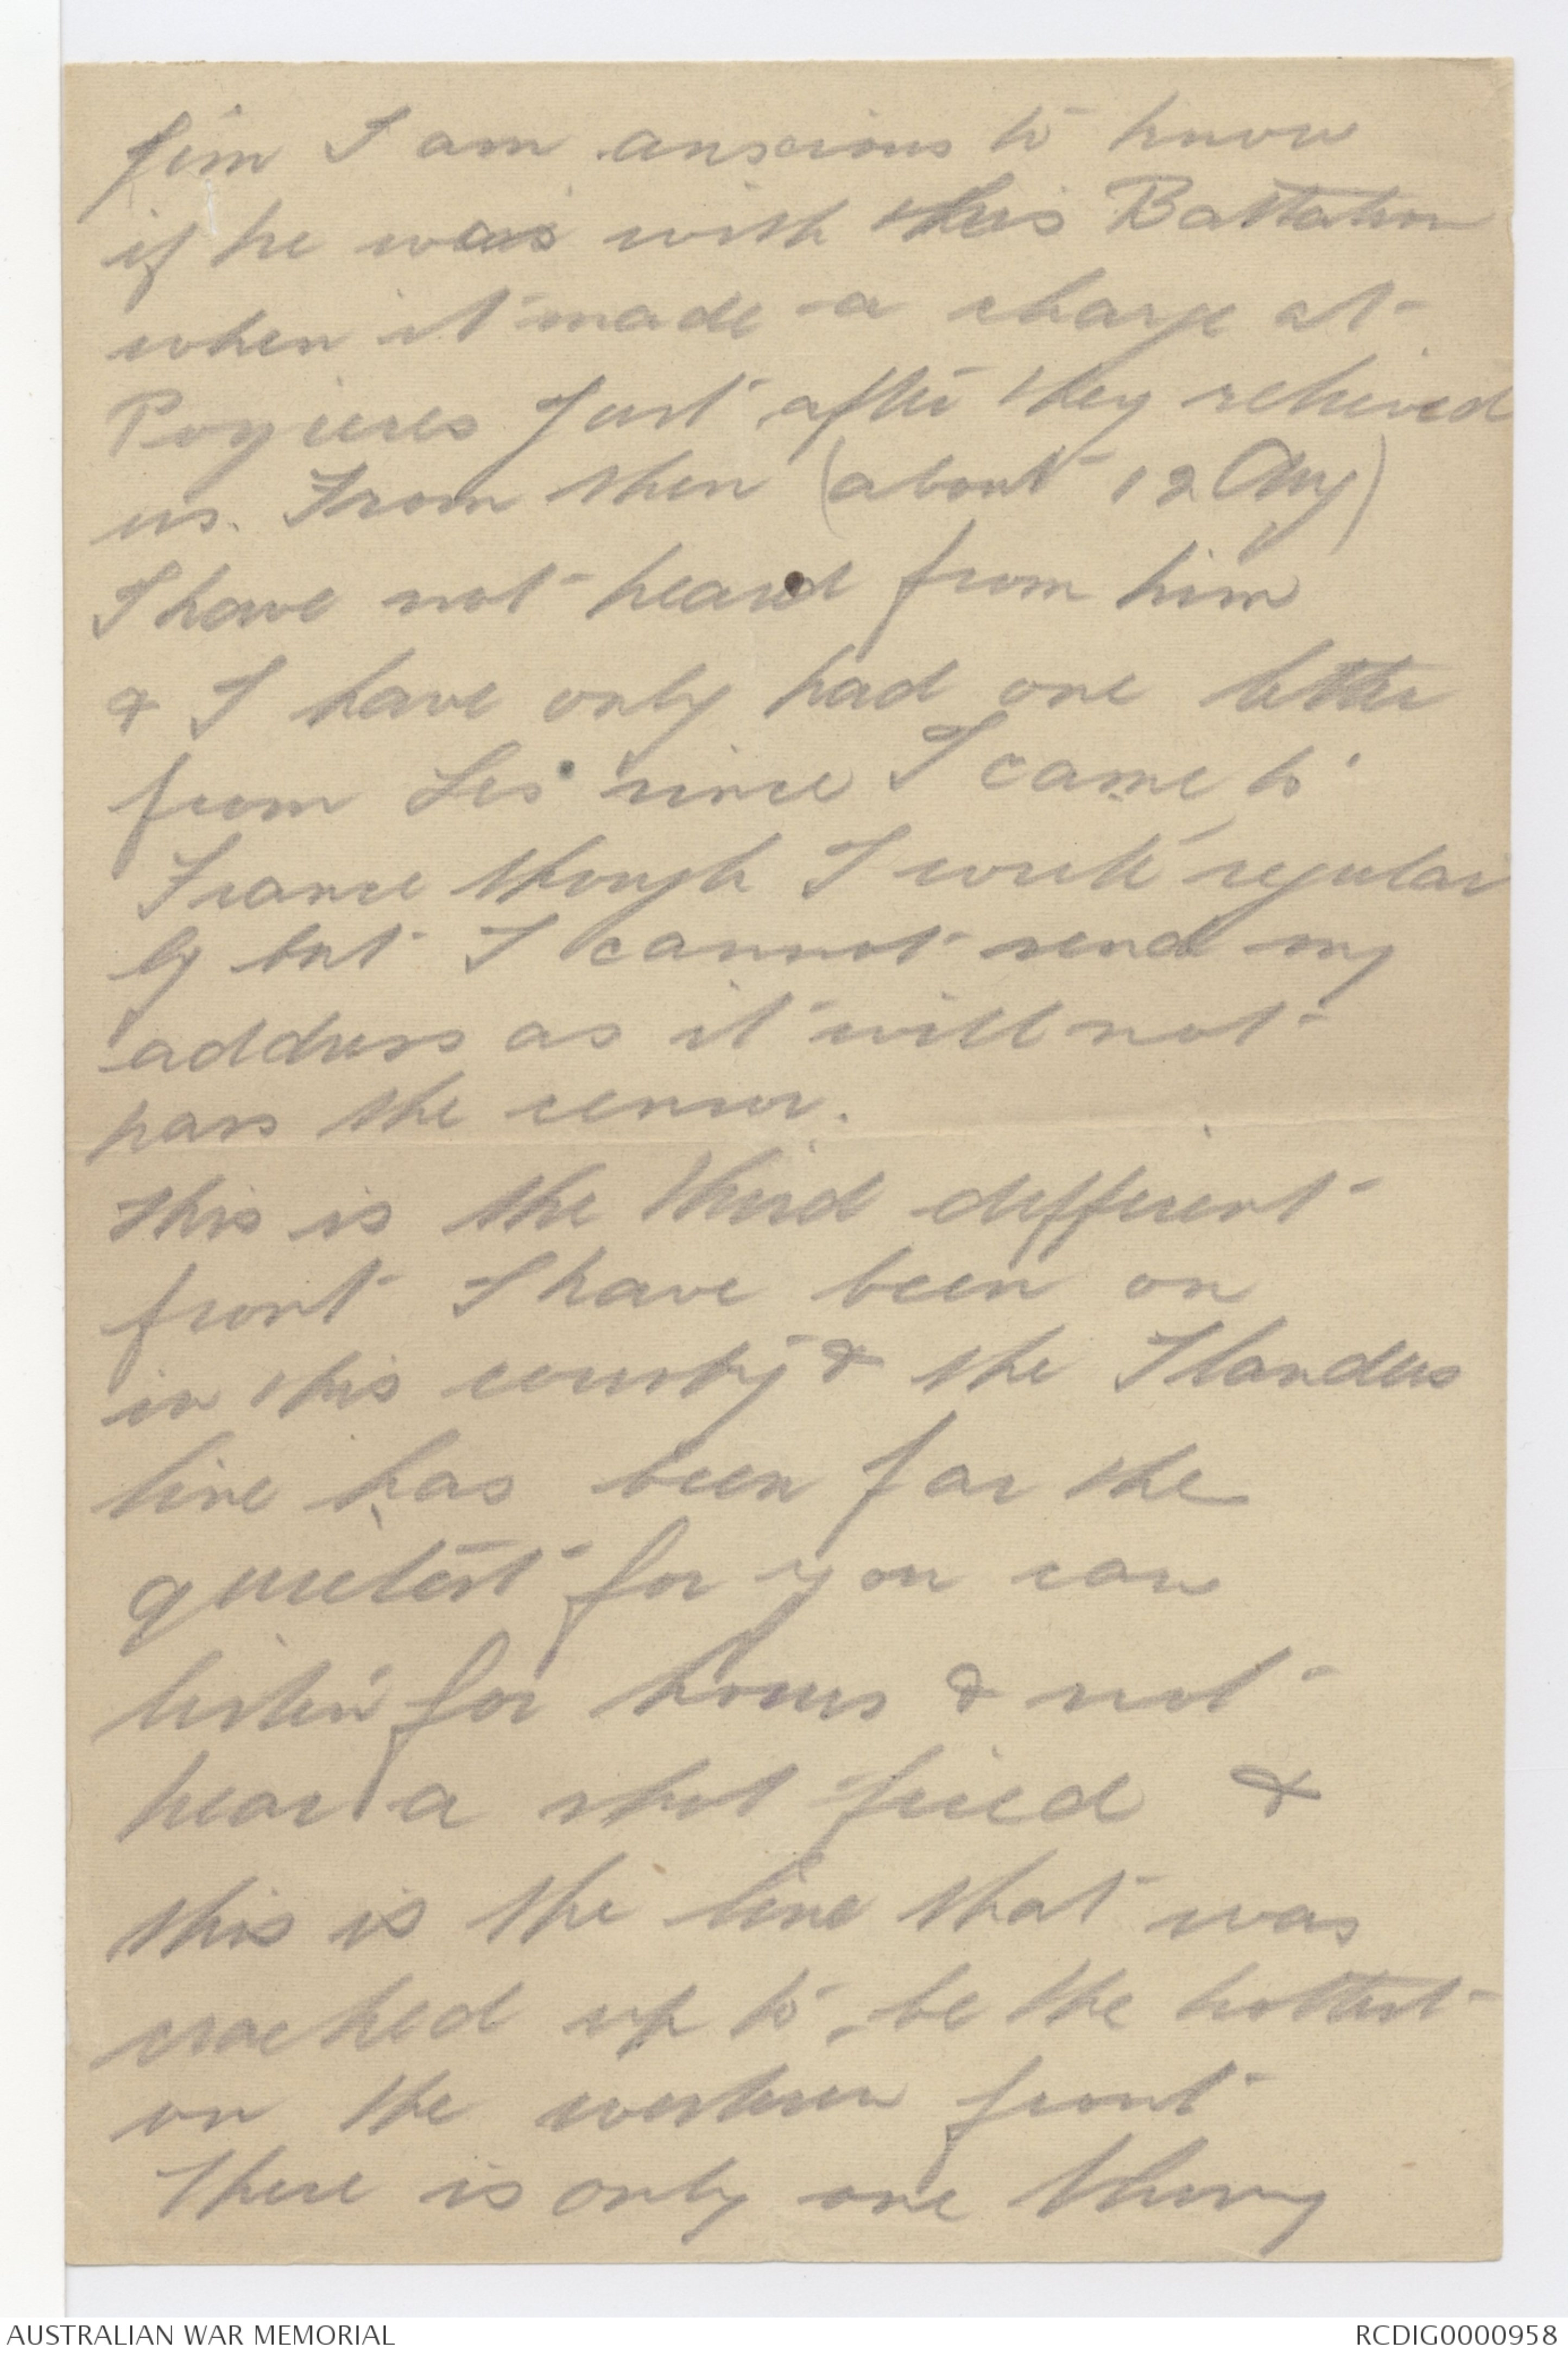 Jim I am anxious to know
if he was with his Battalion
when it made a charge at
Pozieres Just after they relieved
us. From then (about 12 Aug)
I have not heard from him
& I have only had one letter
from Les since I came to
France though I write regular
ly but I cannot send my
address as it will not
pass the censor.
This is the third different
front I have been on
in this country & the Flanders
line has been far the
quietest for you can
listen for hours & not
hear a shot fired &
this is the line that was
cracked up to be the hottest
on the western front
There is only one thing
AUSTRALIAN WAR MEMORIAL
RCDIG0000958